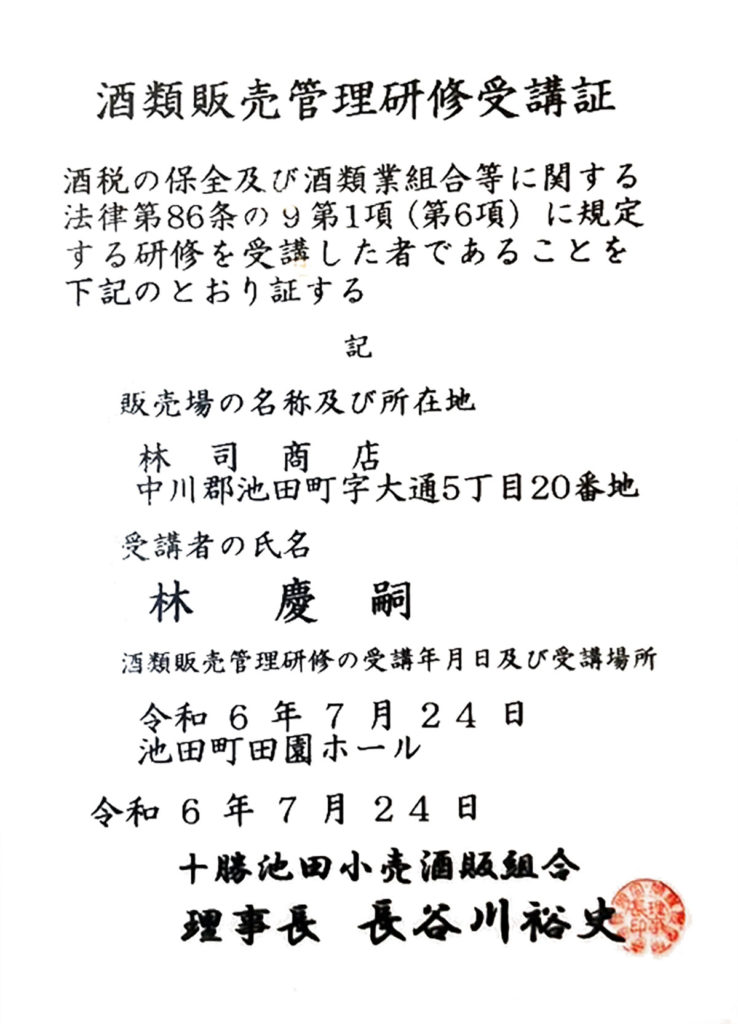 酒類販売管理研修受講証
酒税の保全及び酒類業組合等に関する
法律第86条の9第1項(第6項)に規定
する研修を受講した者であることを
下記のとおり証する
記
販売場の名称及び所在地
林 司 商 店
中川郡池田町字大通5丁目20番地
受講者の氏名
林 慶 嗣
酒類販売管理研修の受講年月日及び受講場所
令和 6 年 7 月 24 日
池田町田園ホール
令和 6 年 7 月 24 日
十勝池田小売酒販組合
理事長 長谷川裕史